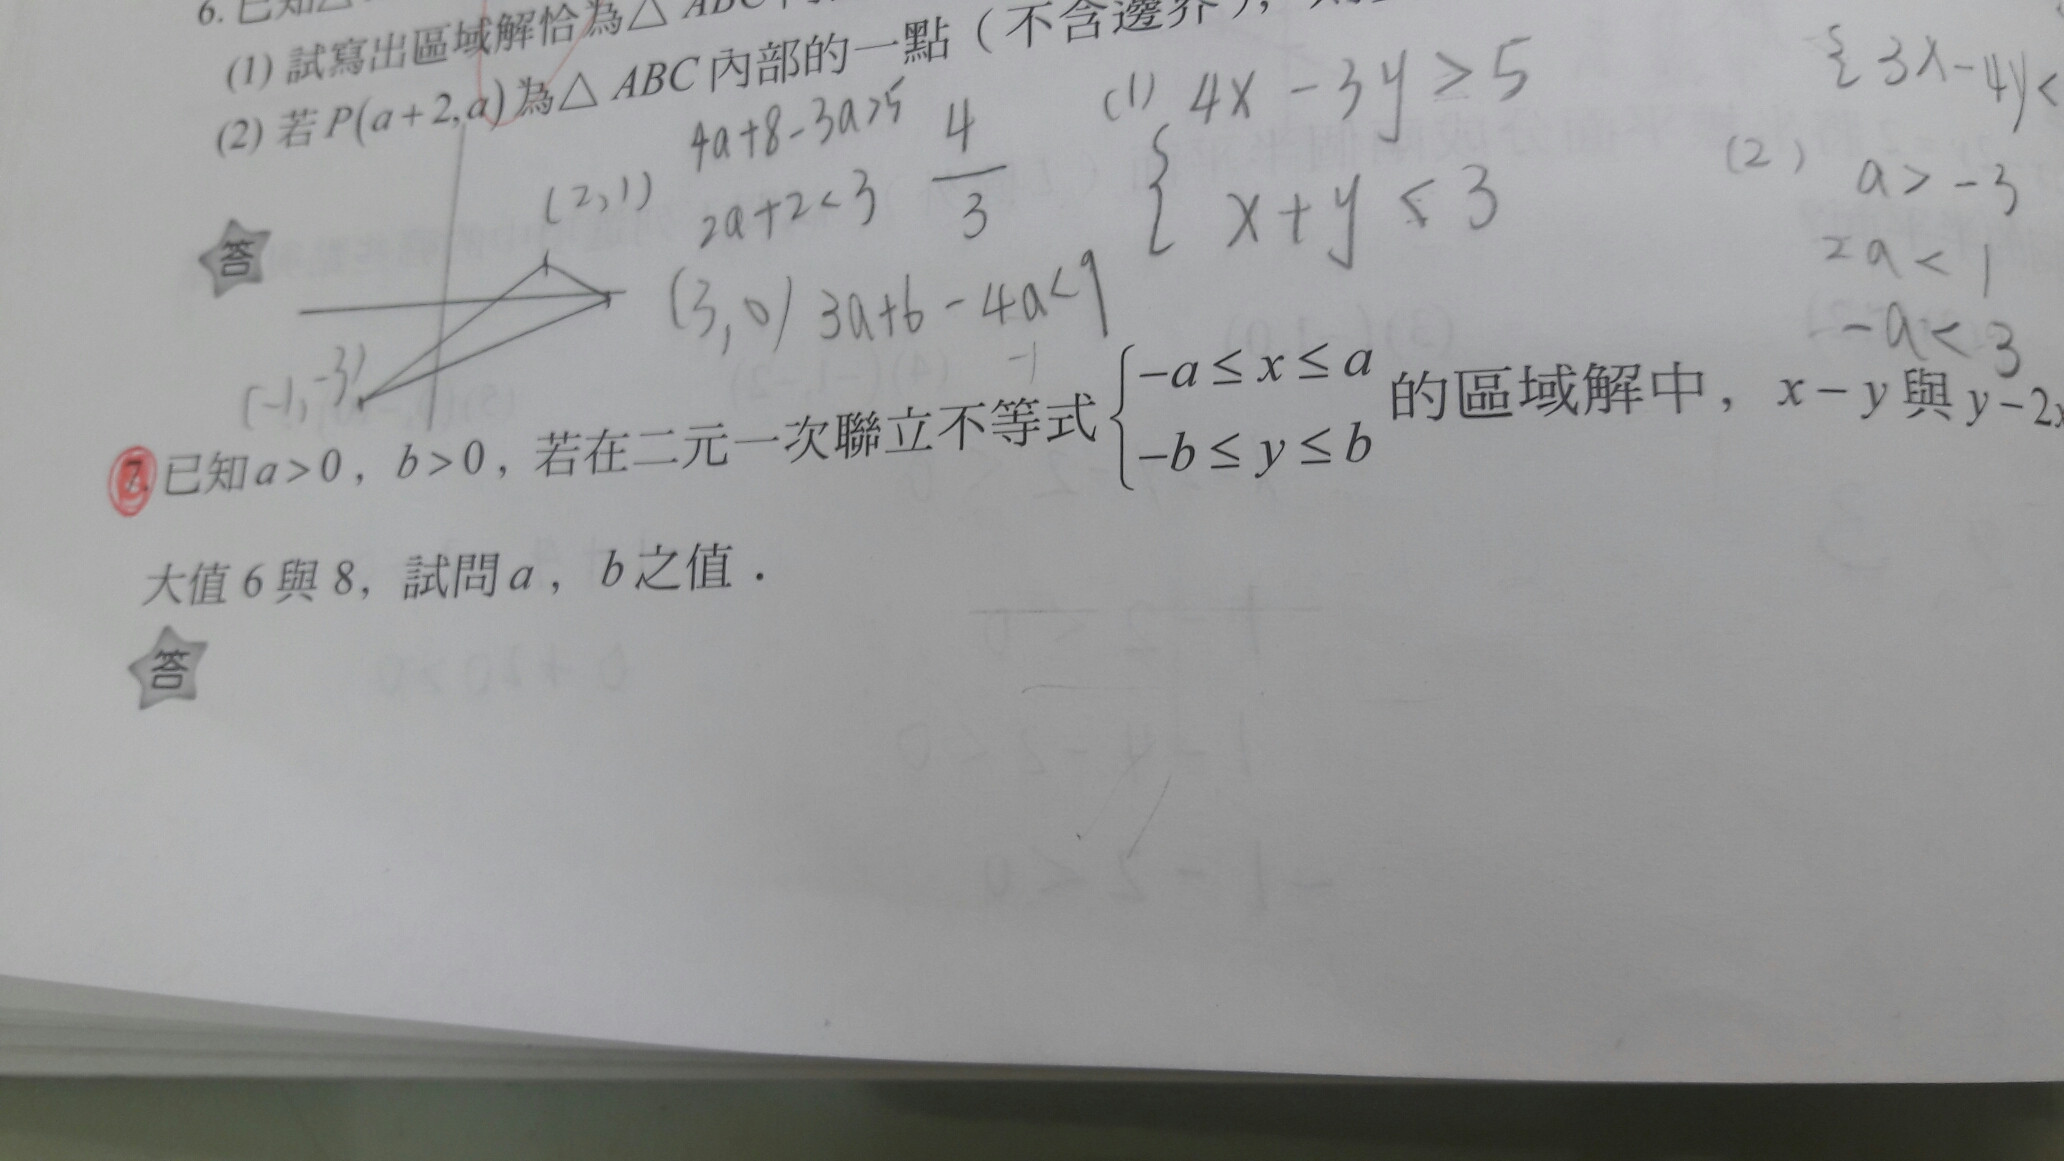 6. 已知△
(1) 試寫出區域解恰為△ ABC
(2) 若 P(a+2,a) 為△ ABC 內部的一點（不含邊界），
答
(2,1)
4a+8-3a>5
2a+2<3
4
3
(3,0) 3a+6-4a<9
-1
(-1,-3)
(1) 4x-3y≥5
{ x+y≤3
{ 3x-4y<
(2) a>-3
2a<1
-a<3
7. 已知 a>0，b>0，若在二元一次聯立不等式 { -a≤x≤a
-b≤y≤b 的區域解中，x-y 與 y-2x
大值 6 與 8，試問 a，b 之值．
答